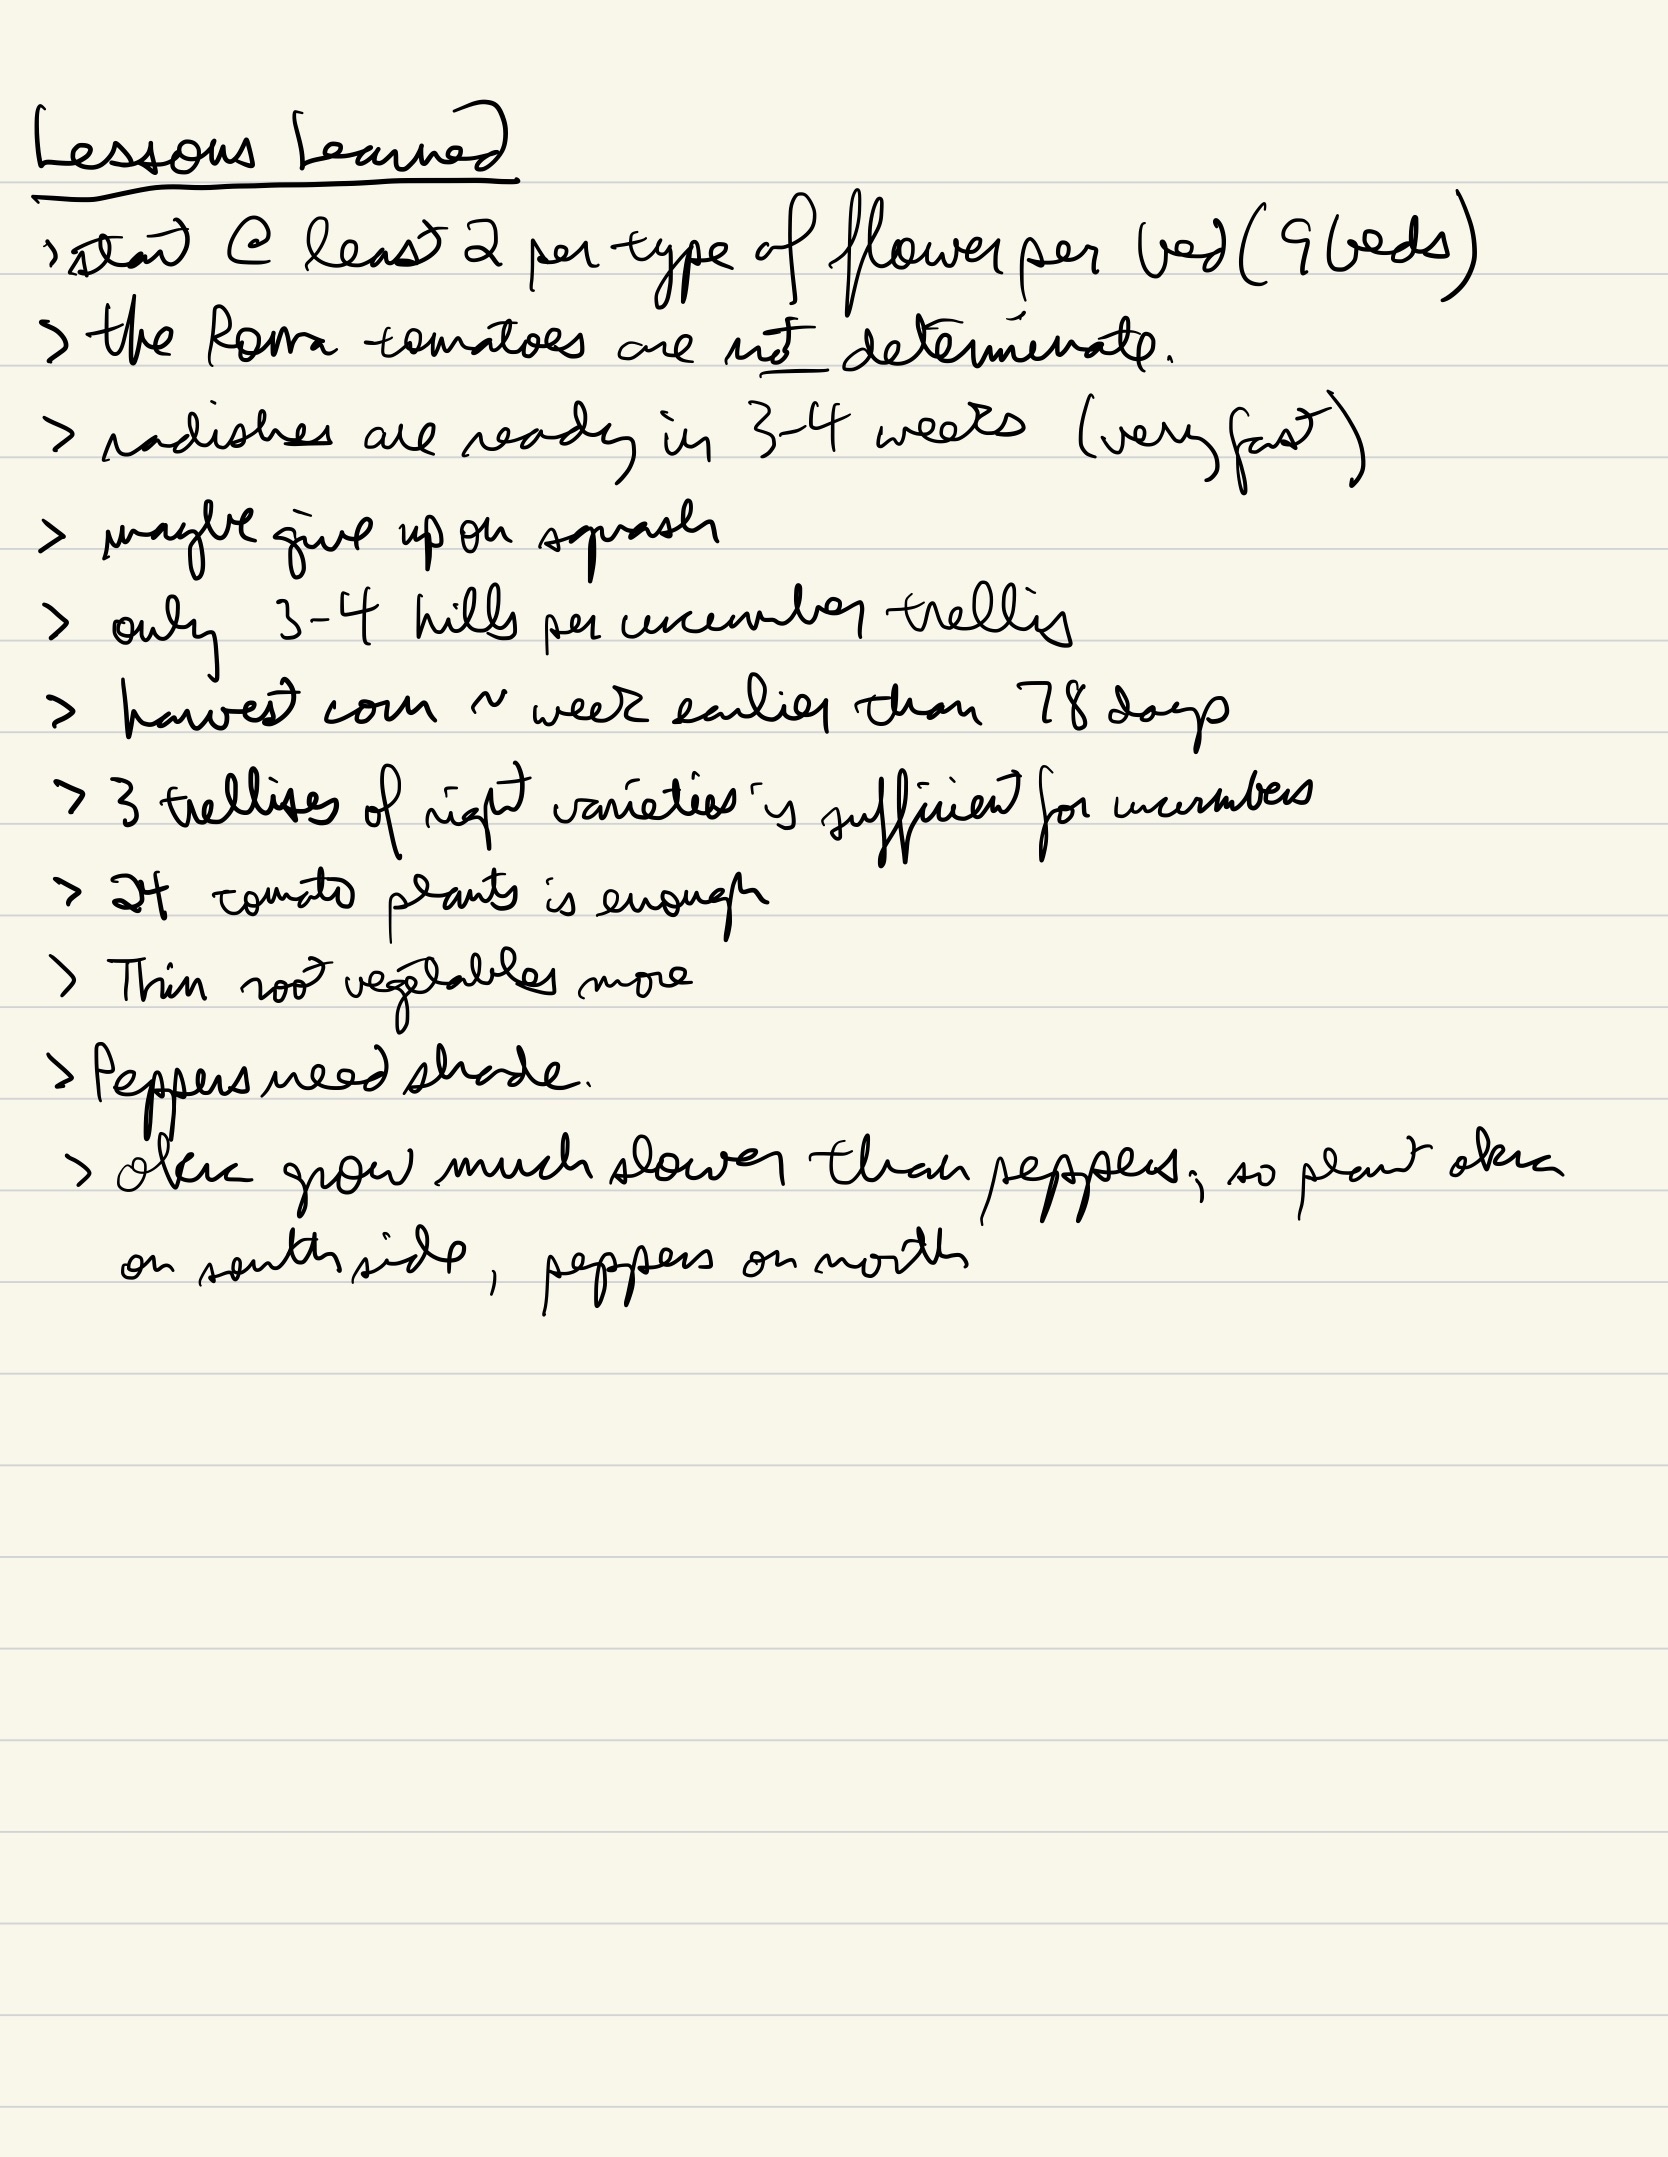 Lessons Learned
> start @ least 2 per type of flower per bed (9 beds)
> the Roma tomatoes are not determinate.
> radishes are ready in 3-4 weeks (very fast)
> maybe give up on squash
> only 3-4 hills per cucumber trellis
> harvest corn ~ week earlier than 78 days
> 3 trellises of right varieties is sufficient for cucumbers
> 24 tomato plants is enough
> Thin root vegetables more
> Peppers need shade.
> okra grow much slower than peppers, so plant okra
on south side, peppers on north